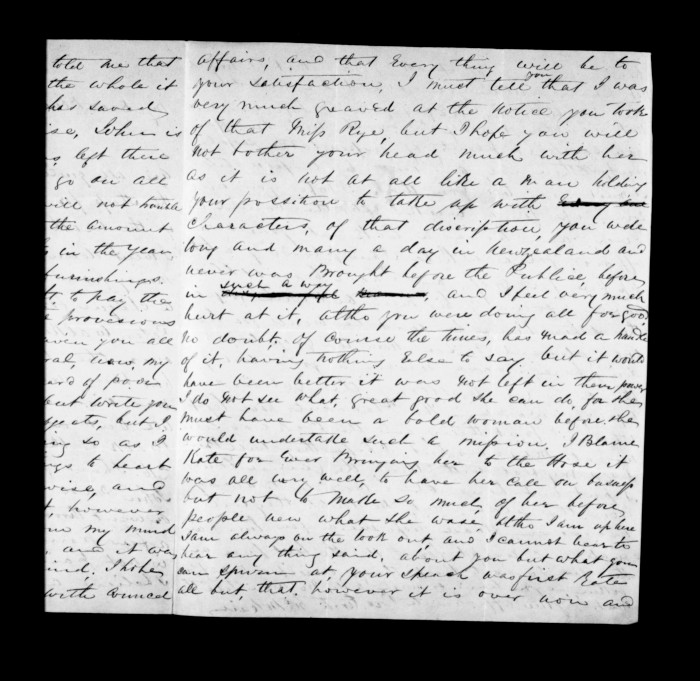 told me that
the whole it
has saved
ise, John is
left there
go on all
will not trouble
the amount
in the year,
furnishings.
to pay the
provisions
given you all
now, my
of poor
but write you
but I
so as I
to heart
wise, and
however
my mind
and it was
ind. I hope
with
affairs, and that Every thing will be to
your satisfaction, I must tell you that I was
very much greaved at the notice you took
of that Miss Rye, but I hope you will
not bother your head much with her
as it is not at all like a man holding
your possition to take up with
Characters, of that discription, you wode
long and many a day in Newzealand and
never was Brought before the Publice, before
in such a way, and I feel very much
hurt at it, altho you were doing all for good
no doubt, of course the times, has mad a handle
of it, having nothing Else to say, but it would
have been better it was not left in them power
I do not see what, great good she can do, for she
must have been a bold woman before, she
would undertake such a mission, I Blame
Kate for Ever Bringing her to the House it
was all very well, to have her call on
but not to Made so much, of her before
people new what she wase, Altho I am up here
I am always on the look out, and I cannot bear to
hear any thing said, about you but what
at, your speach was first Rate
all but, that, however it is over now and